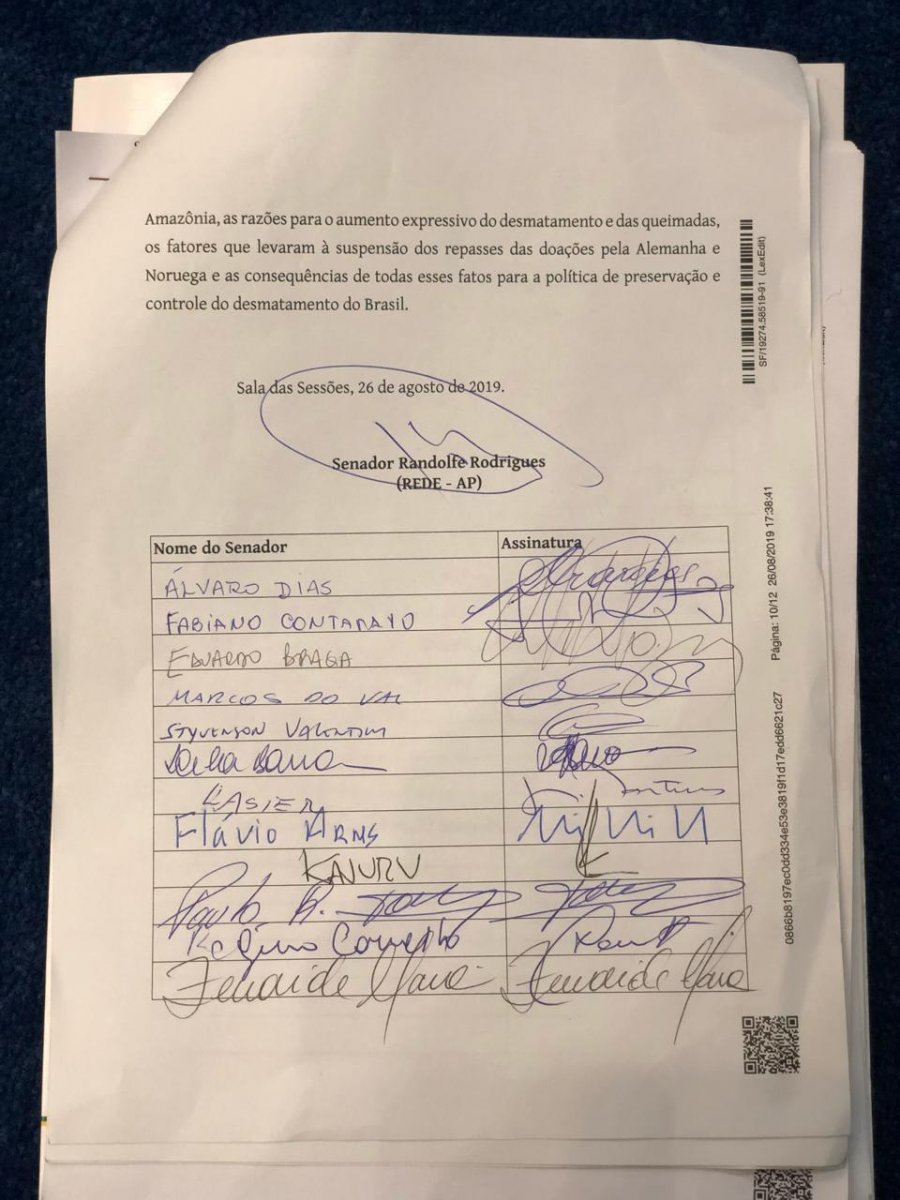 Amazônia, as razões para o aumento expressivo do desmatamento e das queimadas,
os fatores que levaram à suspensão dos repasses das doações pela Alemanha e
Noruega e as consequências de todas esses fatos para a política de preservação e
controle do desmatamento do Brasil.
Sala das Sessões, 26 de agosto de 2019.
Senador Randolfe Rodrigues
(REDE - AP)
Nome do Senador Assinatura
ÁLVARO DIAS
FABIANO CONTARATO
EDUARDO BRAGA
MARCOS DO VAL
STYVENSON VALENTIM
LASIER
Flávio ARNS
KAJURU
Paulo R.
Zenaide Maia Zenaide Maia
SF/19274.58519-91 (LexEdit)
Página: 10/12 26/08/2019 17:38:41
0866b8197ec0dd334e53e3819f1d17edd6621c27